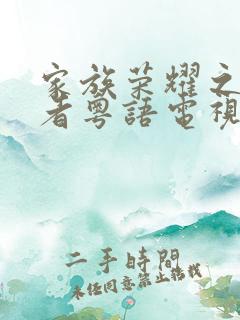 家族荣耀之
者粤語電視
二手時間
未经同意禁止转载